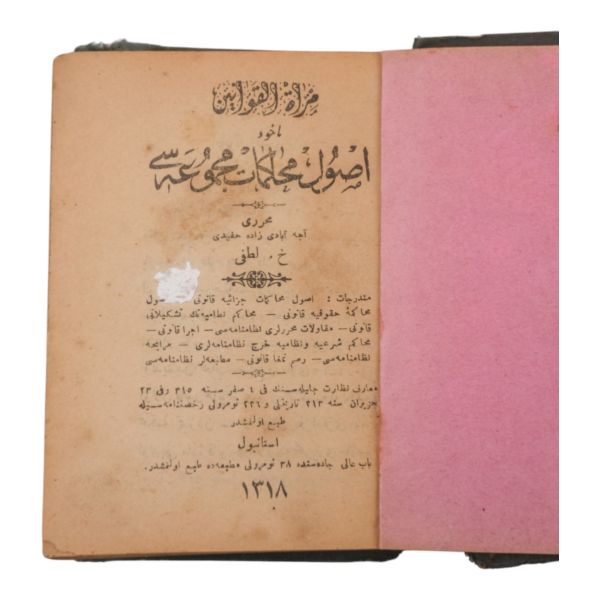 مرآة القوانين
ياخود
اصول محاكمات مجموعه سى
محررى
آجه آبادى زاده حفيدى
خ . لطفى
مندرجات : اصول محاكمات جزائيه قانونى صول
محاكمۀ حقوقيه قانونى — محاكم نظاميه نك تشكيلاتى
قانونى — مقاولات محررلرى نظامنامه سى — اجرا قانونى —
محاكم شرعيه ونظاميه خرج نظامنامه لرى — مرابحه
نظامنامه سى — رسم تمغا قانونى — مطبعه لر نظامنامه سى
معارف نظارت جليله سنك فى ٤ صفر سنه ٣١٥ وفى ٢٣
حزيران سنه ٣١٣ تاريخلى و ٢٣٦ نومرولى رخصتنامه سيله
طبع اولنمشدر
استانبول
باب عالى جاده سنده ٣٨ نومرولى مطبعه ده طبع اولنمشدر.
١٣١٨